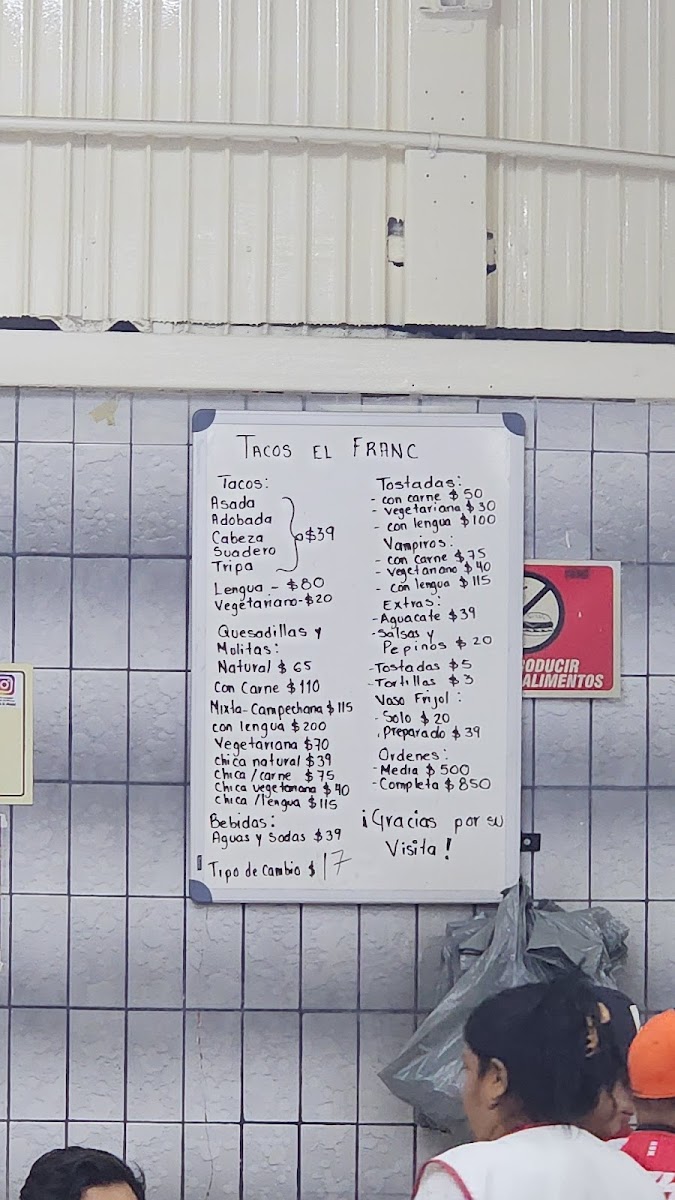 TACOS EL FRANC
Tacos:
Asada
Adobada
Cabeza
Suadero
Tripa
$39
Lengua - $80
Vegetariano-$20
Quesadillas y
Mulitas:
Natural $ 65
Con Carne $110
Mixta-Campechana $115
con lengua $200
Vegetariana $70
chica natural $39
Chica /carne $75
Chica vegetariana $40
chica /lengua $115
Bebidas:
Aguas y Sodas $39
Tipo de Cambio $ 17
Tostadas:
- con carne $50
- vegetariana $30
- con lengua $100
Vampiros:
- con carne $75
- vegetariano $40
- con lengua $115
Extras:
- Aguacate $39
- Salsas y
Pepinos $20
- Tostadas $5
- Tortillas $3
Vaso Frijol:
- Solo $20
- Preparado $39
Ordenes:
- Media $500
- Completa $850
¡Gracias por su
Visita!
ODUCIR
ALIMENTOS